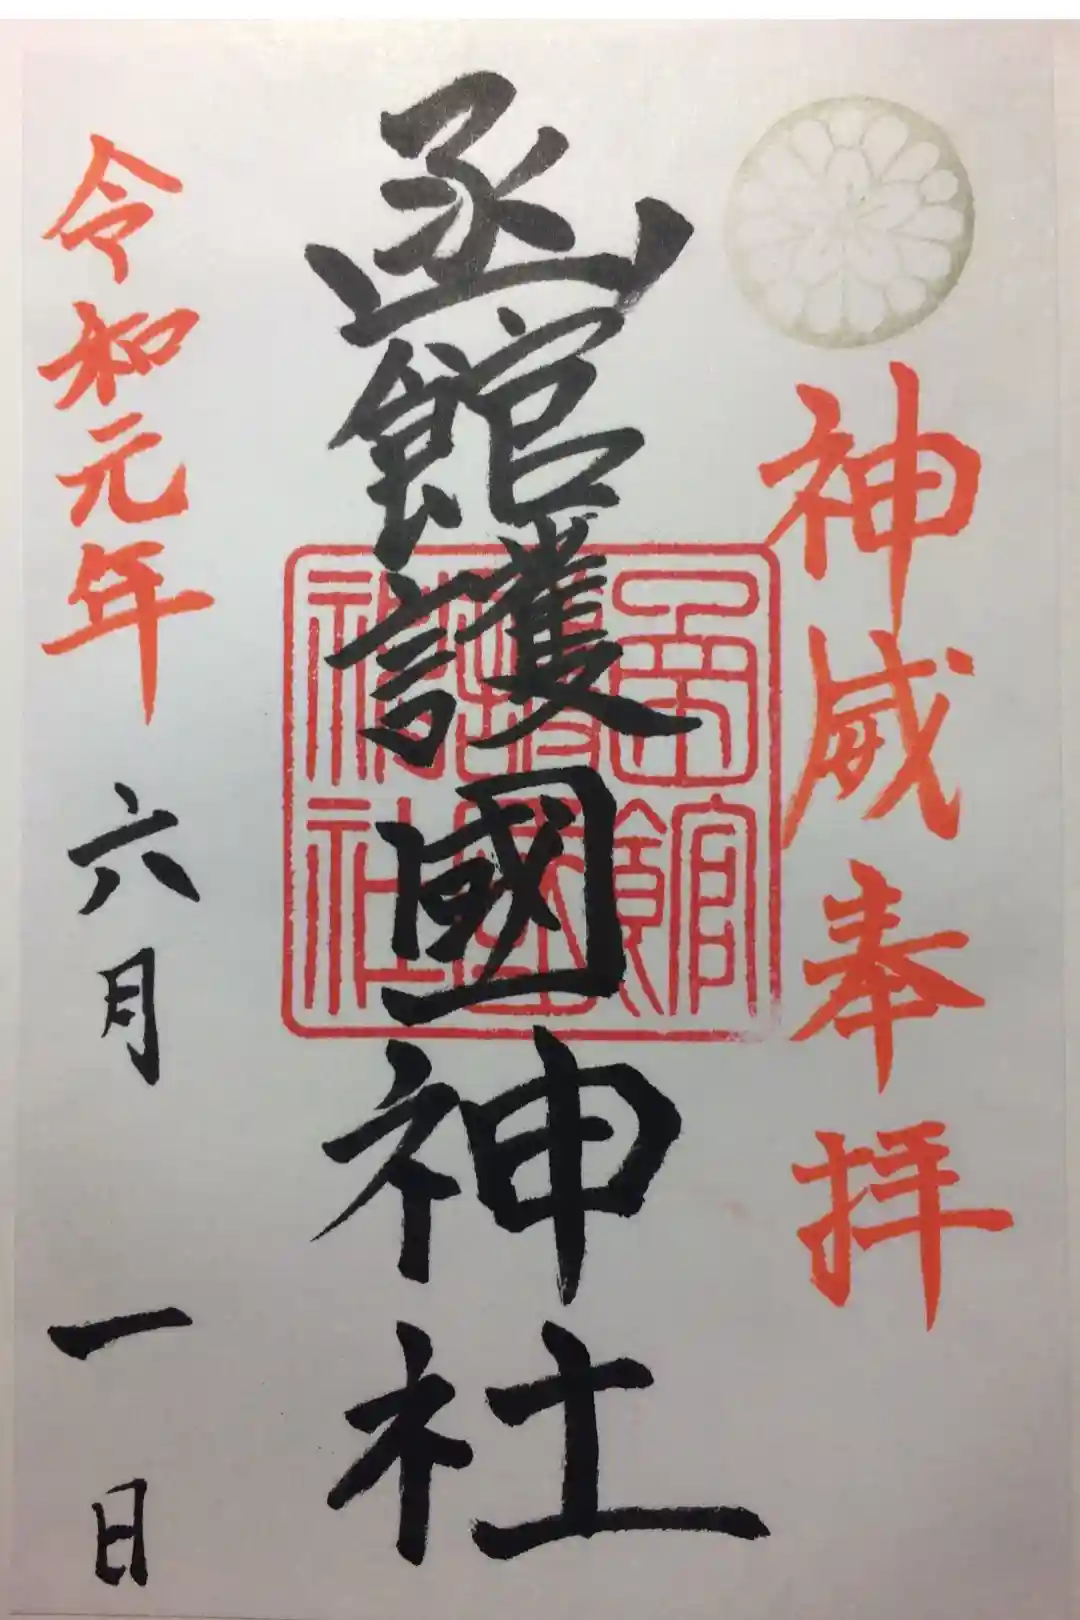 神威奉拝
函館護國神社
函館
護国
神社
令和元年六月一日